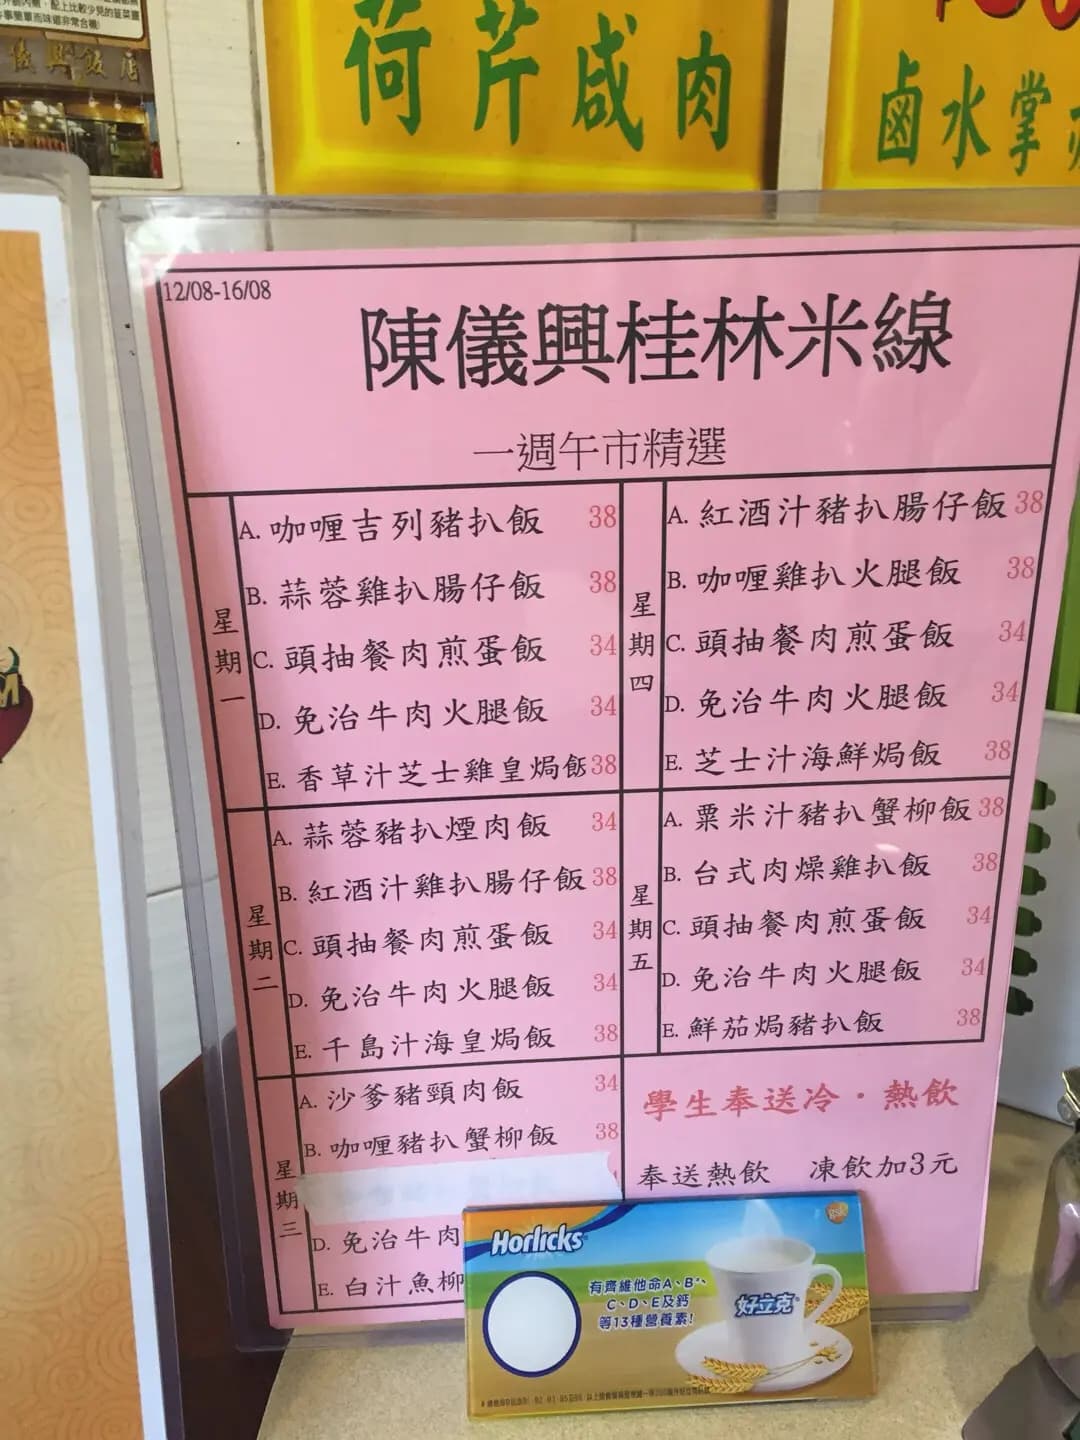 儀興飯店
荷芹咸肉
鹵水掌
12/08-16/08
陳儀興桂林米線
一週午市精選
星期一
A. 咖喱吉列豬扒飯 38
B. 蒜蓉雞扒腸仔飯 38
C. 頭抽餐肉煎蛋飯 34
D. 免治牛肉火腿飯 34
E. 香草汁芝士雞皇焗飯 38
星期二
A. 蒜蓉豬扒煙肉飯 34
B. 紅酒汁雞扒腸仔飯 38
C. 頭抽餐肉煎蛋飯 34
D. 免治牛肉火腿飯 34
E. 千島汁海皇焗飯 38
星期三
A. 沙爹豬頸肉飯 34
B. 咖喱豬扒蟹柳飯 38
D. 免治牛肉
E. 白汁魚柳
星期四
A. 紅酒汁豬扒腸仔飯 38
B. 咖喱雞扒火腿飯 38
C. 頭抽餐肉煎蛋飯 34
D. 免治牛肉火腿飯 34
E. 芝士汁海鮮焗飯 38
星期五
A. 粟米汁豬扒蟹柳飯 38
B. 台式肉燥雞扒飯 38
C. 頭抽餐肉煎蛋飯 34
D. 免治牛肉火腿飯 34
E. 鮮茄焗豬扒飯 38
學生奉送冷·熱飲
奉送熱飲 凍飲加3元
Horlicks
gsk
有齊維他命A、B
C、D、E及鈣
等13種營養素!
好立克